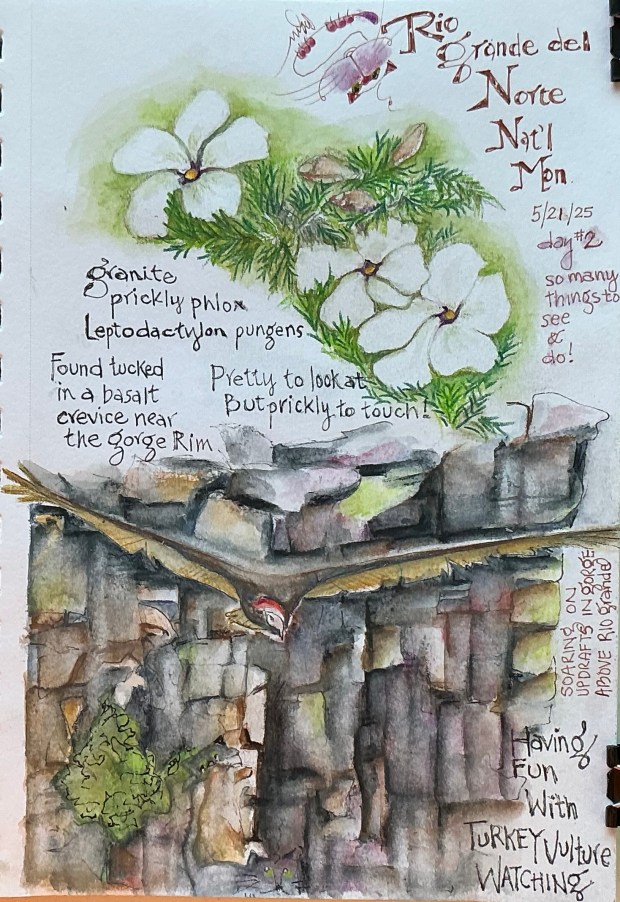 Rio
grande del
Norte
Nat'l
Mon.
5/21/25
day #2
so many
things to
see
&
do!
granite
prickly phlox
Leptodactylon pungens
Found tucked
in a basalt
crevice near
the gorge Rim
Pretty to look at
But prickly to touch!
SOARING ON
UPDRAFTS IN gorge
ABOVE RIO grande
Having
Fun
With
TURKEY Vulture
WATCHING